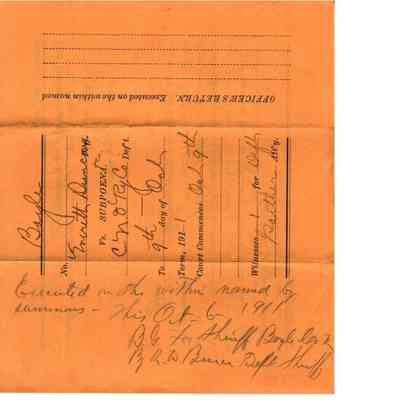 OFFICER'S RETURN. Executed on the within named
Boyle
No.
Everett Duncan
Vs. SUBPOENA
C N O & T P Co Dept.
To 9th day of Oct
Term, 191 1
Court Commences Oct 9th
Witnesses 1 for Deft
Att'y.
Executed on the within named by
summons - This Oct - 6 - 1911
Sheriff Boyle Co
By Dept Sheriff